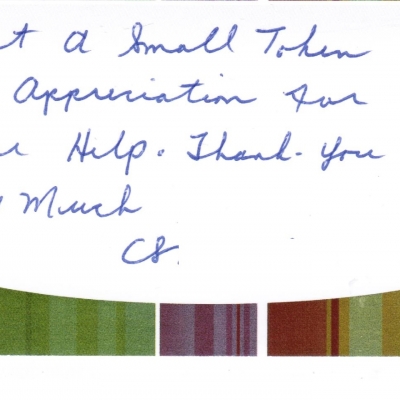 t a Small Token
Appreciation for
Help. Thank-You
Much
CS.